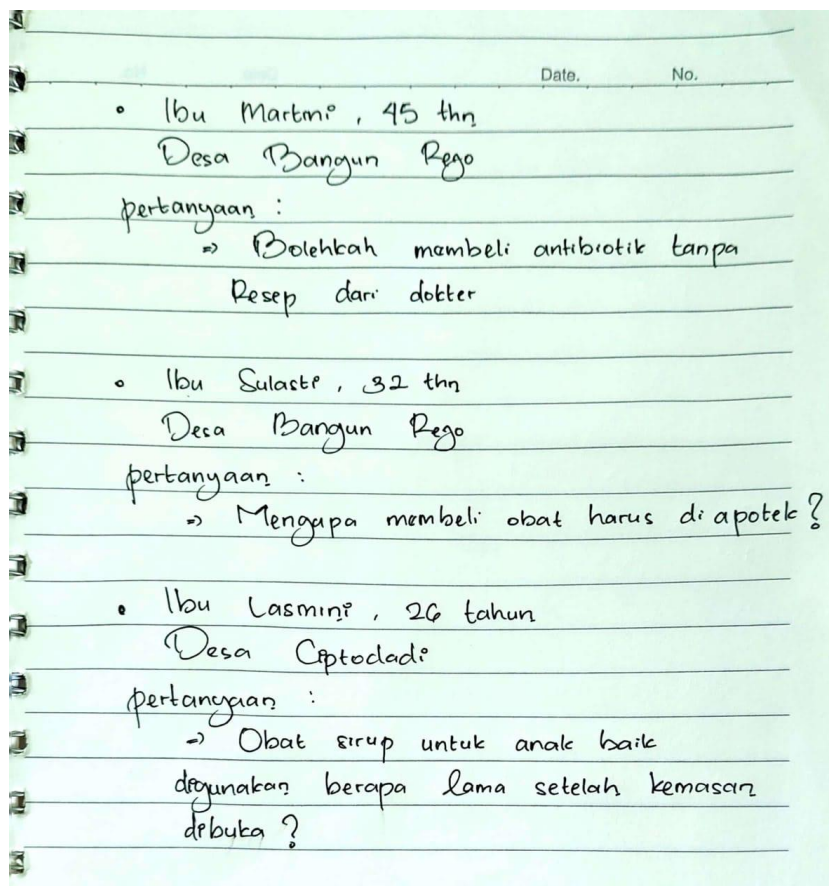 Date. No.
• Ibu Martini, 45 thn
Desa Bangun Rego
pertanyaan :
=> Bolehkah membeli antibiotik tanpa
Resep dari dokter
• Ibu Sulasti, 32 thn
Desa Bangun Rego
pertanyaan :
=> Mengapa membeli obat harus di apotek?
• Ibu Lasmini, 26 tahun
Desa Ciptodadi
pertanyaan :
=> Obat sirup untuk anak baik
digunakan berapa lama setelah kemasan
dibuka?